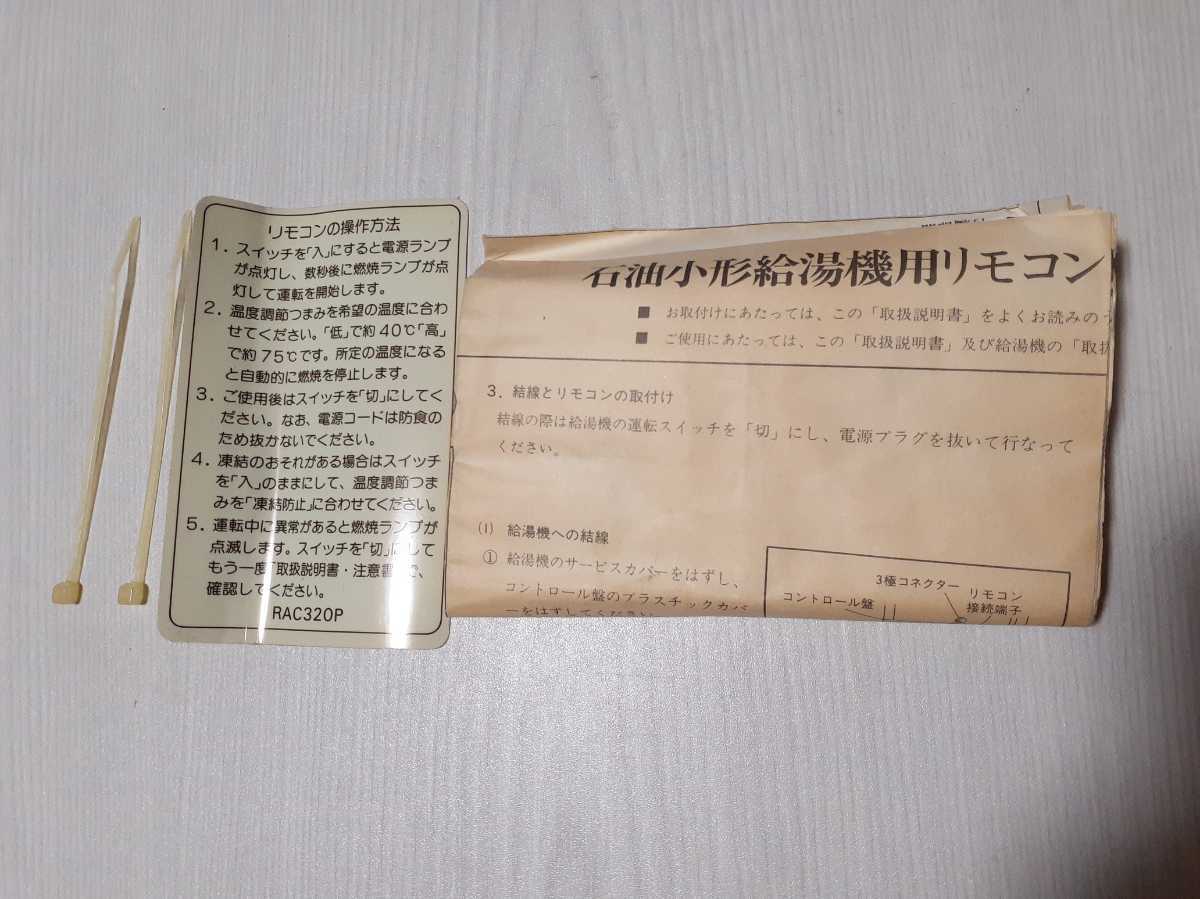 リモコンの操作方法
1. スイッチを「入」にすると電源ランプ
が点灯し、数秒後に燃焼ランプが点
灯して運転を開始します。
2. 温度調節つまみを希望の温度に合わ
せてください。「低」で約40℃「高」
で約75℃です。所定の温度になる
と自動的に燃焼を停止します。
3. ご使用後はスイッチを「切」にしてく
ださい。なお、電源コードは防食の
ため抜かないでください。
4. 凍結のおそれがある場合はスイッチ
を「入」のままにして、温度調節つま
みを「凍結防止」に合わせてください。
5. 運転中に異常があると燃焼ランプが
点滅します。スイッチを「切」にして
もう一度「取扱説明書・注意書」で、
確認してください。
RAC320P
石油小形給湯機用リモコン
■ お取付けにあたっては、この「取扱説明書」をよくお読みの
■ ご使用にあたっては、この「取扱説明書」及び給湯機の「取扱
3. 結線とリモコンの取付け
結線の際は給湯機の運転スイッチを「切」にし、電源プラグを抜いて行なって
ください。
(1) 給湯機への結線
① 給湯機のサービスカバーをはずし、
コントロール盤のプラスチックカバ
ーをはずしてください。
3極コネクター
リモコン
接続端子
コントロール盤